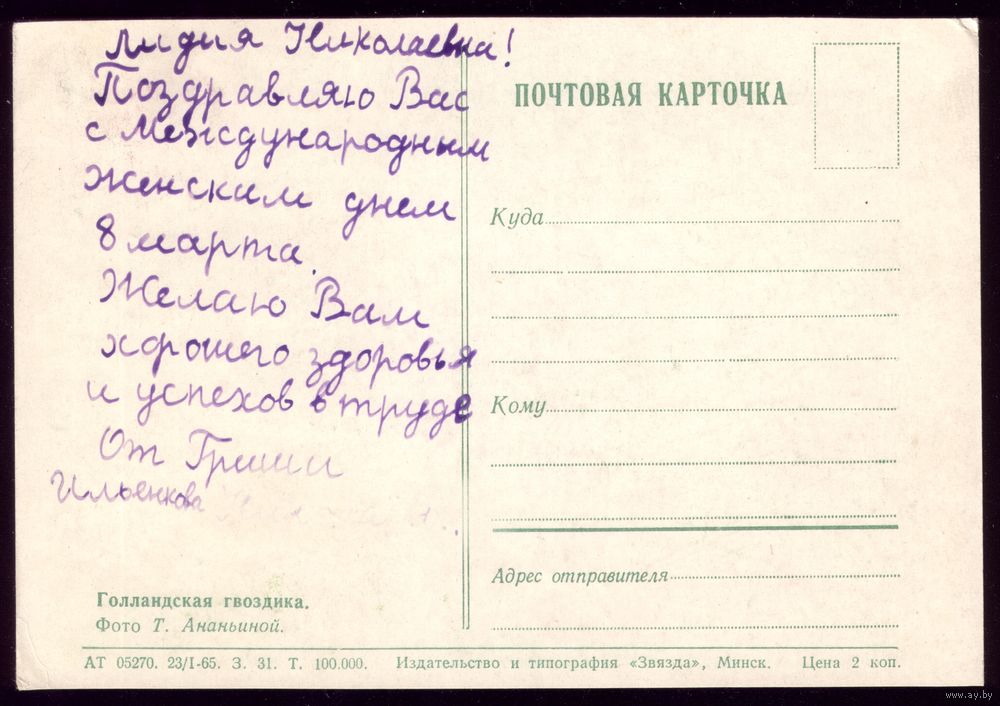 Лидия Николаевна!
Поздравляю Вас
с Международным
женским днем
8 марта.
Желаю Вам
хорошего здоровья
и успехов в труде
От Гриши
Ильенкова
ПОЧТОВАЯ КАРТОЧКА
Куда
Кому
Адрес отправителя
Голландская гвоздика.
Фото Т. Ананьиной.
АТ 05270. 23/I-65. З. 31. Т. 100.000. Издательство и типография «Звязда», Минск. Цена 2 коп.
www.ay.by